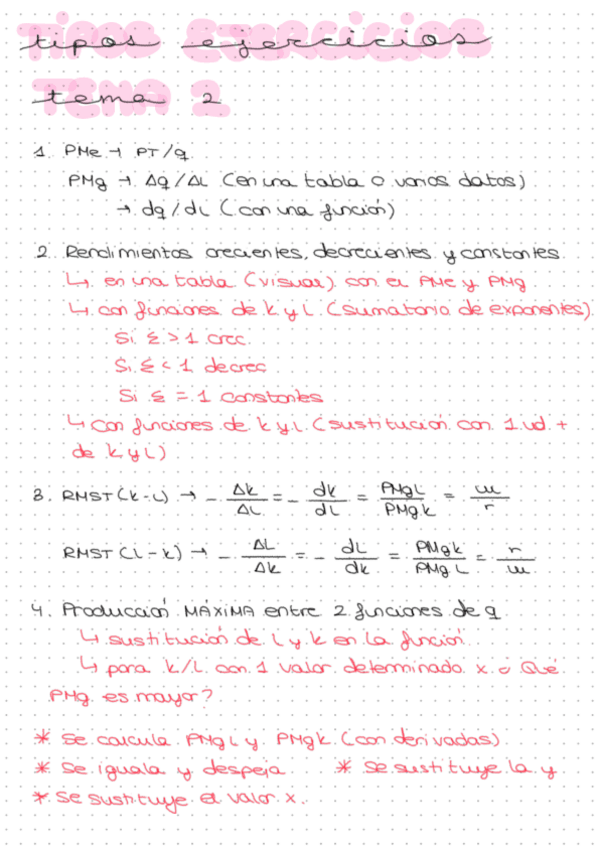 tipos ejercicios
tema 2
1. PMe → PT/q
PMg → Δq/ΔL (en una tabla o varios datos)
→ dq/dL (con una función)
2. Rendimientos crecientes, decrecientes y constantes
↳ en una tabla (visual) con el PMe y PMg
↳ con funciones de k y L (sumatorio de exponentes)
Si Σ > 1 crec
Si Σ < 1 decrec
Si Σ = 1 constantes
↳ con funciones de k y L (sustitución con 1 ud +
de k y L)
3. RMST (k-L) → - Δk/ΔL = - dk/dL = PMgL/PMgk = w/r
RMST (L-k) → - ΔL/Δk = - dL/dk = PMgk/PMgL = r/w
4. Producción MÁXIMA entre 2 funciones de q
↳ sustitución de L y k en la función
↳ para k/L con 1 valor determinado x ¿Qué
PMg es mayor?
* Se calcula PMgL y PMgk (con derivadas)
* Se iguala y despeja * se sustituye la y
* Se sustituye el valor x.